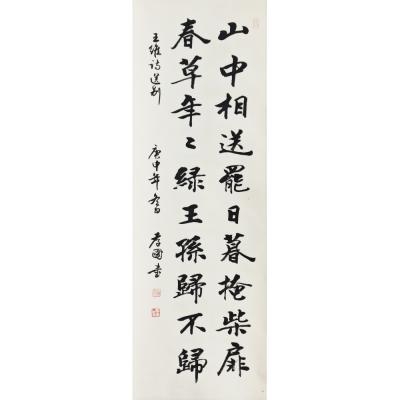 山中相送罷日暮掩柴扉
春草年〻綠王孫歸不歸
王維詩送別
庚申年
國書